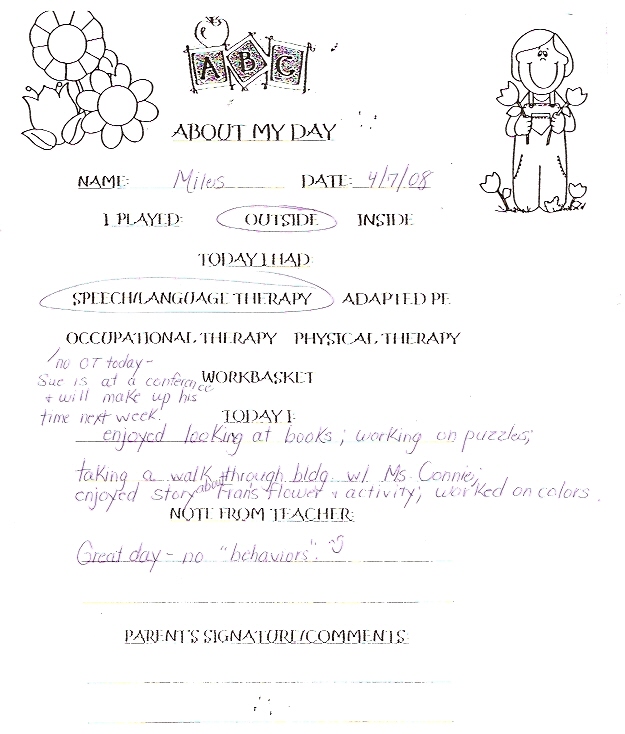 A B C
ABOUT MY DAY
NAME: Miles DATE: 4/7/08
I PLAYED: OUTSIDE INSIDE
TODAY I HAD:
SPEECH/LANGUAGE THERAPY ADAPTED PE
OCCUPATIONAL THERAPY PHYSICAL THERAPY
no OT today -
Sue is at a conference
+ will make up his
time next week.
WORKBASKET
TODAY I:
enjoyed looking at books; working on puzzles;
taking a walk through bldg. w/ Ms. Connie;
enjoyed story about Fran's flower + activity; worked on colors.
NOTE FROM TEACHER:
Great day - no "behaviors".
PARENT'S SIGNATURE/COMMENTS: